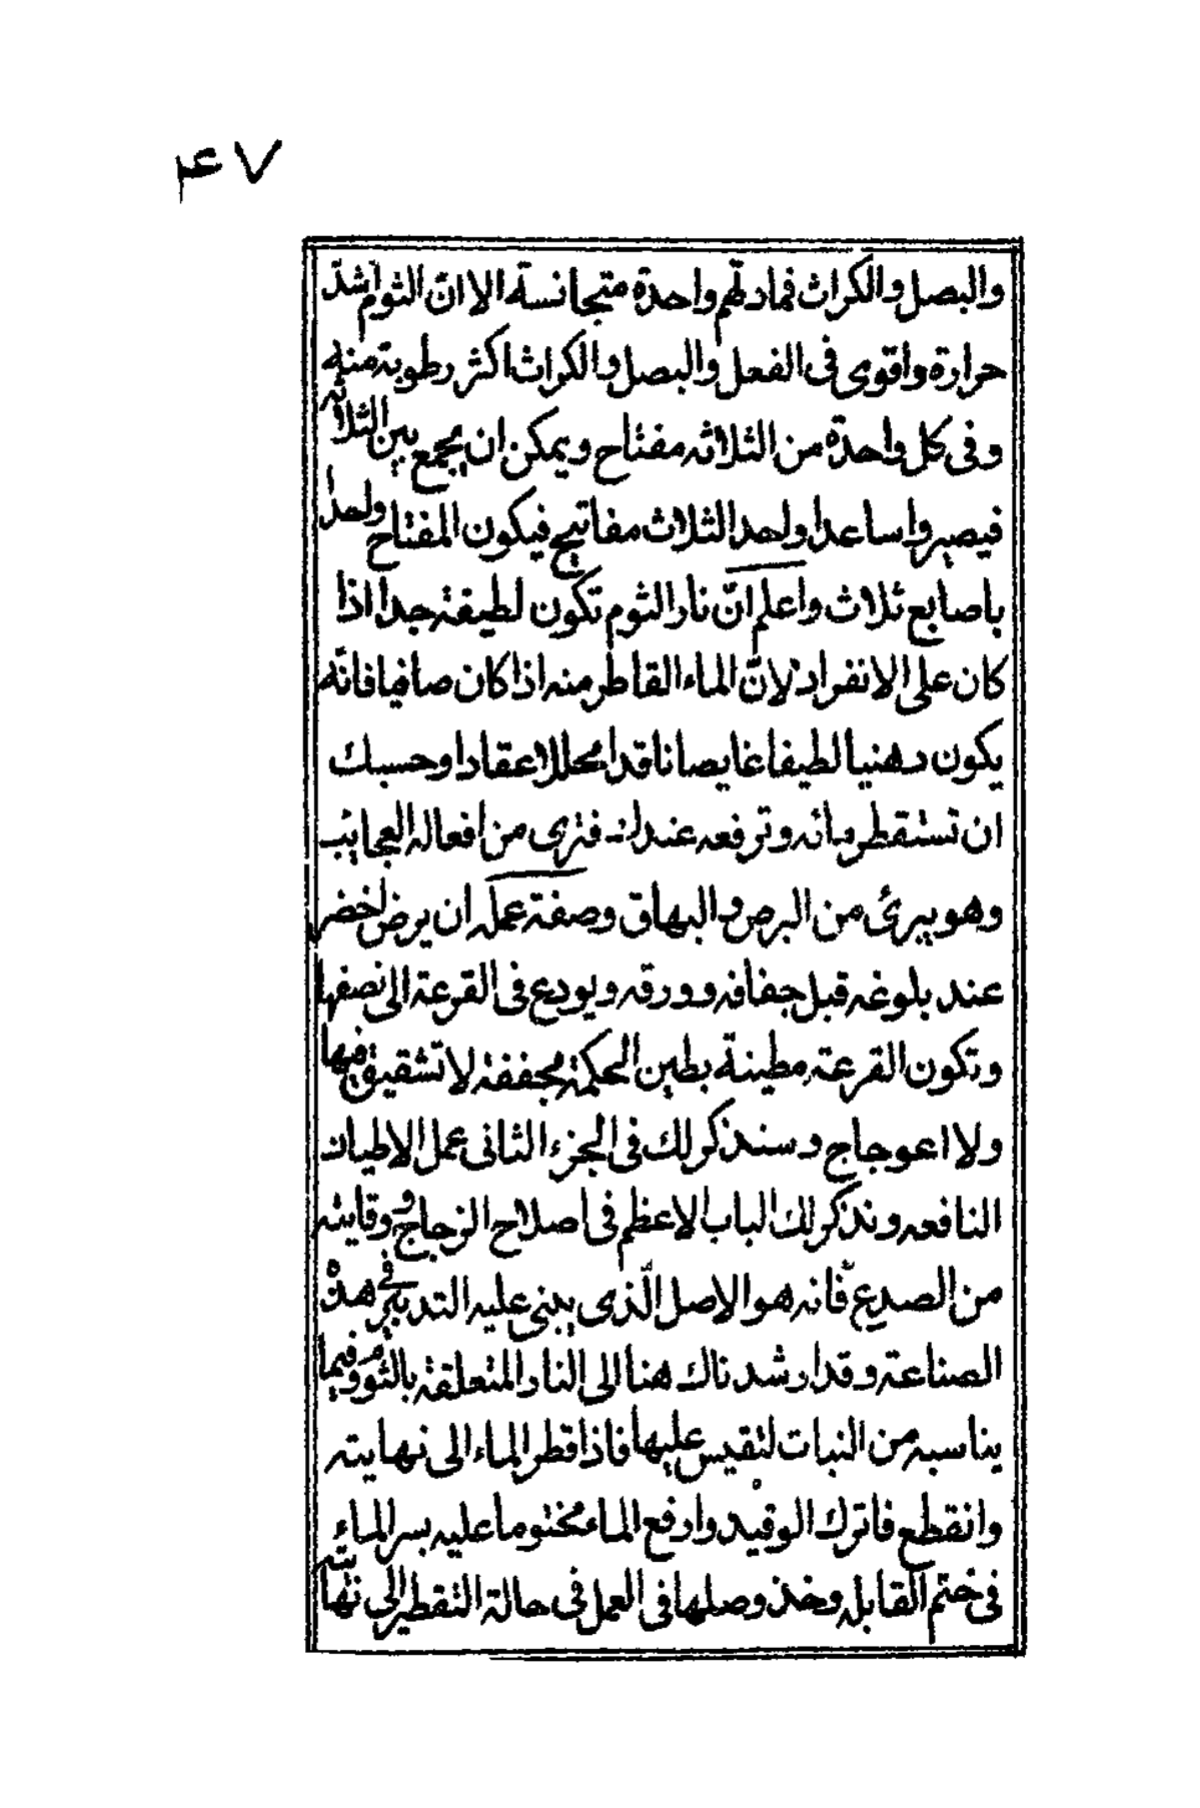 ۴۷
والبصل والكراث فمادتهم واحدة متجانسة الا انّ الثوم اشدّ
حرارة واقوى فى الفعل والبصل والكراث اكثر رطوبة منه
وفى كل واحدة من الثلاثه مفتاح ويمكن ان يجمع بين الثلاثه
فيصير واساعدا واحد الثلاث مفاتيح فيكون المفتاح واحدا
باصابع ثلاث واعلم انّ نار الثوم تكون لطيفة جدا اذا
كان على الانفراد لانّ الماء القاطر منه اذا كان صافيا فانّه
يكون دهنيا لطيفا غايصا ناقدا محللا عقادا وحسبك
ان تستقطر مائه وترفعه عندك فترى من افعاله العجايب
وهو يبرئ من البرص والبهاق وصفة عمله ان يرض اخضر
عند بلوغه قبل جفافه وورقه ويودع فى القرعة الى نصفها
وتكون القرعة مطينة بطين الحكمة مجففة لا تشقيق فيها
ولا اعوجاج وسنذكر لك فى الجزء الثانى عمل الاطيان
النافعه ونذكر لك الباب الاعظم فى اصلاح الزجاج ووقايته
من الصديع فانه هو الاصل الّذى يبنى عليه التدبير فى هذه
الصناعة وقد ارشدناك هنا الى النار المتعلقة بالثوم وفيما
يناسبه من النبات لتقيس عليها فاذا قطر الماء الى نهايته
وانقطع فاترك الوقيد وارفع الماء مختوما عليه بسر الماء
فى ختم القابله وخذ وصلها فى العمل فى حالة التقطير الى نهايته